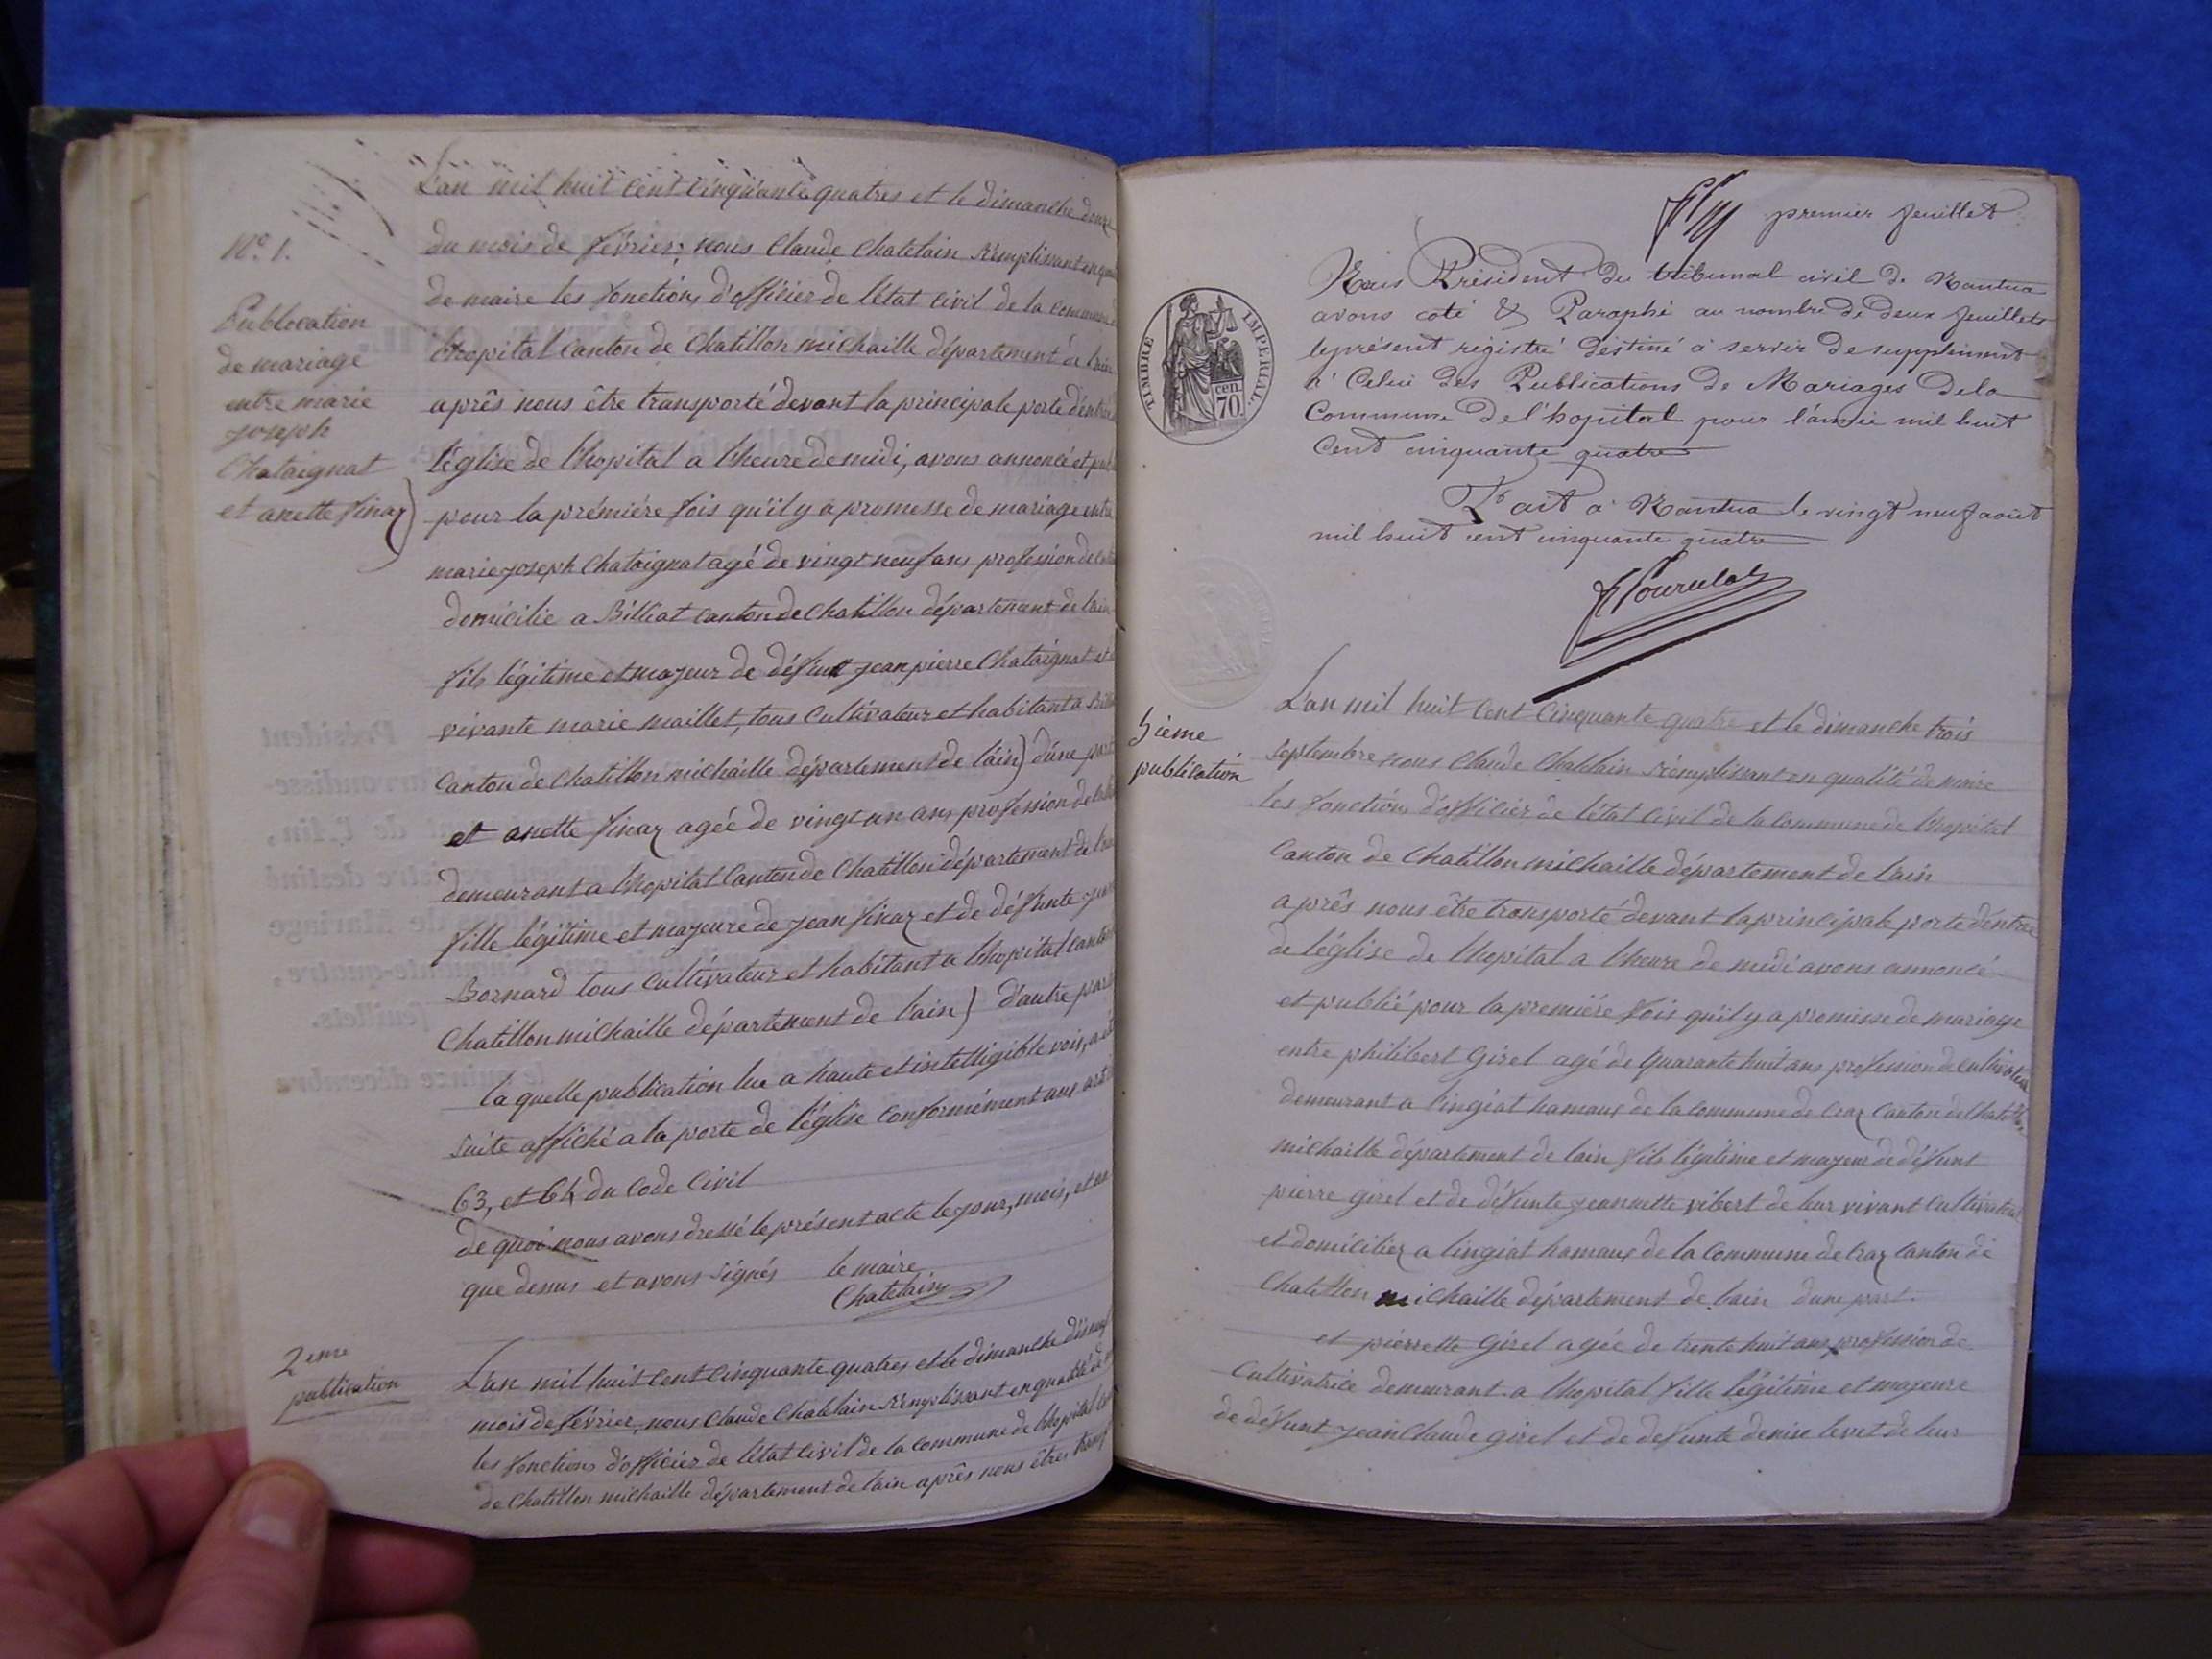 L'an mil huit cent cinquante quatres et le dimanche douze
du mois de février, nous Claude Chatelain Remplissant en
de maire les fonctions d'officier de l'état civil de la commune
lhopital canton de Chatillon michaille département de lain
après nous être transporté devant la principale porte d'entrée
l'église de lhopital a lheure de midi, avons annoncé et
pour la prémiére fois qu'il y a promesse de mariage entre
marie joseph Chataignat agé de vingt neuf ans profession de
domicilie a Billiat canton de chatillon département de lain
fils légitime et majeur de défunt jean pierre Chataignat et
vivante marie maillet, tous cultivateur et habitant a
Canton de chatillon michaille département de lain) d'une part
et anette finaz ageé de vingt un ans profession de
demeurant a lhopital Canton de Chatillon département de lain
fille légitime et majeure de jean finaz et de défunte
Bornard tous cultivateur et habitant a lhopital canton
Chatillon michaille département de lain) d'autre part
la quelle publication lue a haute et intelligible vois, a été
suite affiché a la porte de l'église conformément aux
63, et 64 du code civil
de quoi nous avons dressé le présent acte le jour, mois, et an
que dessus et avons signés le maire
Chatelain
N.º 1.
Publocation
de mariage
entre marie
joseph
Chataignat
et anette finaz)
2eme
publication
L'an mil huit cent cinquante quatres et le dimanche
mois de février, nous Claude Chatelain Remplissant en qualité de
les fonctions d'officier de létat civil de la commune de lhopital
de Chatillon michaille département de lain aprês nous êtres
premier feuillet
Nous Président du tribunal civil de Nantua
avons coté & Paraphé au nombre de deux feuillets
le présent régistre déstiné a servir de supplément
a Celui des Publications de Mariages de la
Commune de l'hopital pour l'année mil huit
cent cinquante quatre
Fait a Nantua le vingt neuf août
mil huit cent cinquante quatre
TIMBRE IMPERIAL
cen.
70
publication
L'an mil huit cent cinquante quatre et le dimanche trois
septembre nous Claude Chatelain Rémplissant en qualité de maire
les fonctions d'officier de létat civil de la commune de lhopital
canton de Chatillon michaille département de lain
aprês nous être transporté devant la principale porte d'entrée
de léglise de lhopital a lheure de midi avons annoncé
et publié pour la premiére fois qu'il y a promesse de mariage
entre philibert Girel agé de quarante huit ans profession de cultivateur
demeurant a lingiat hamaux de la commune de Craz canton de Chatillon
michaille département de lain fils légitime et majeur de défunt
pierre girel et de défunte jeannette vibert de leur vivant cultivateur
et domicilier a lingiat hamaux de la commune de Craz canton de
Chatillon michaille département de lain d'une part.
et pierrette Girel agée de trente huit ans profession de
cultivatrice demeurant a lhopital fille légitime et majeure
de défunt jean Claude girel et de défunte denise levet de leur